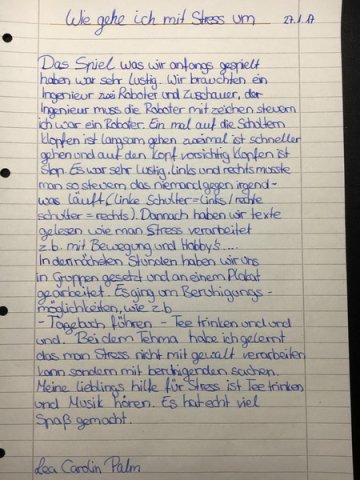 Wie gehe ich mit Stress um 27.1.17
Das Spiel was wir anfangs gespielt
haben war sehr lustig. Wir brauchten ein
Ingenieur zwei Roboter und Zuschauer, der
Ingenieur muss die Roboter mit zeichen steuern
ich war ein Roboter. Ein mal auf die Schultern
Klopfen ist langsam gehen zweimal ist schneller
gehen und auf den Kopf vorsichtig Klopfen ist
Stop. Es war sehr Lustig. Links und rechts musste
man so steuern das niemand gegen irgend-
was läuft (linke Schulter = links / rechte
schulter = rechts). Dannach haben wir texte
gelesen wie man Stress verarbeitet
z.b. mit Bewegung und Hobby's....
In den nächsten Stunden haben wir uns
in Gruppen gesetzt und an einem Plakat
gearbeitet. Es ging um Beruhigungs-
möglichkeiten, wie z.b
- Tagebuch führen - Tee trinken und und
und. Bei dem Tehma habe ich gelernt
das man Stress nicht mit gewalt verarbeiten
kann sondern mit beruhigenden sachen.
Meine lieblings hilfe für Stress ist Tee trinken
und Musik hören. Es hat echt viel
Spaß gemacht.
Lea Carolin Palm